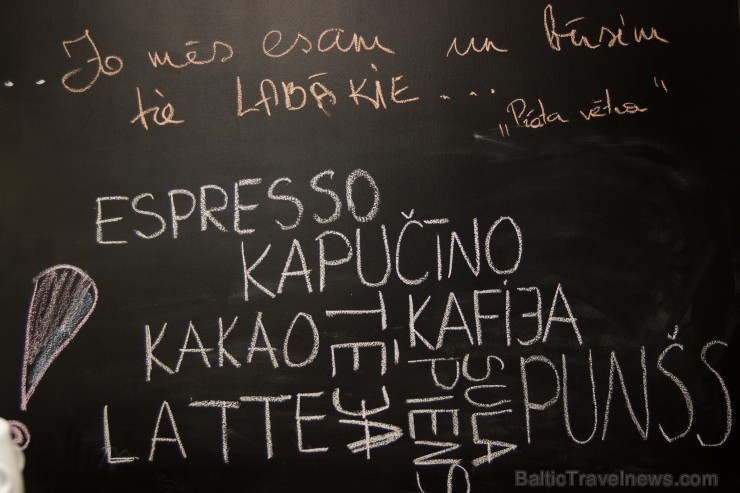 ..Jo mēs esam un būsim
tie LABĀKIE...
„Prāta vētra"
ESPRESSO
KAPUČĪNO
KAKAO
TĒJA
KAFIJA
LATTE
PIENS
SULA
PUNŠS
BalticTravelnews.com